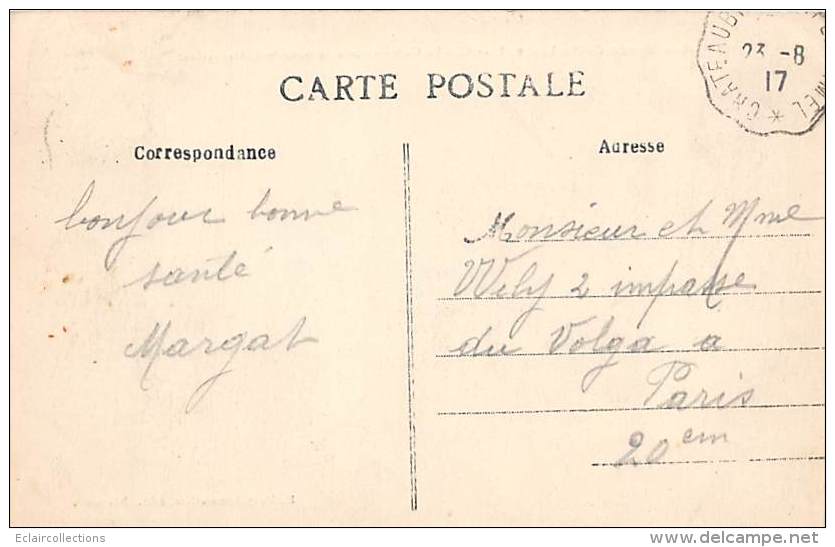 CARTE POSTALE
Correspondance
bonjour bonne
santé
Margat
Adresse
Monsieur et Mme
Wely 2 impasse
du Volga a
Paris
20 em
CHATEAUB
23 -8
17
MEL
Eclaircollections
www.delcampe.net